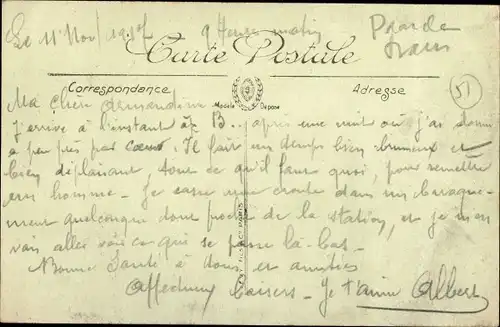 Le 11 Nov/ 1917 9 heures matin
Carte Postale
Correspondance
Adresse
Modèle Déposé
51
Ma chère
J'arrive à l'instant à B... après une nuit où j'ai dormi
à peu près par cœur. Il fait un temps bien brumeux et
bien déplaisant, tout ce qu'il faut quoi, pour remettre
un homme - Je casse une croute dans un baraque-
ment quelconque tout proche de la station, et je m'en
vais aller voir ce qui se passe là-bas -
Bonne Santé à tous, et amitiés
Affectueux baisers - Je t'aime Albert